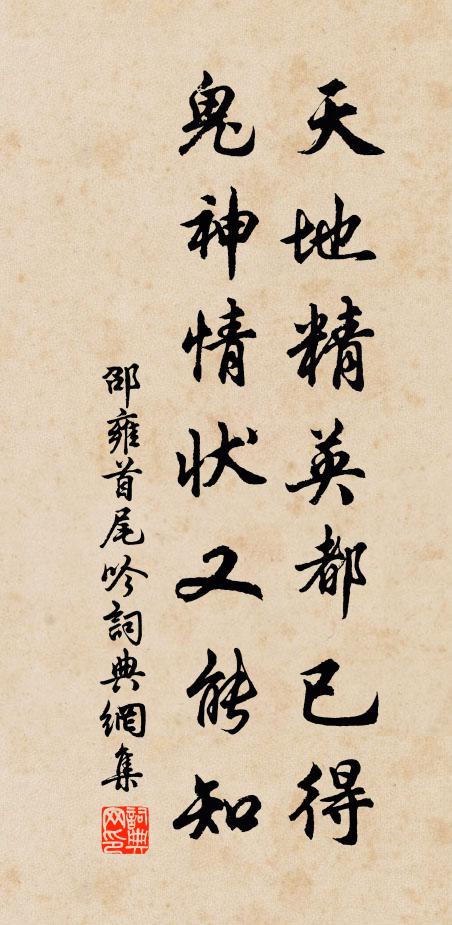 天地精英都已得
鬼神情狀又能知
邵雍首尾吟詞典網集
詞典网印